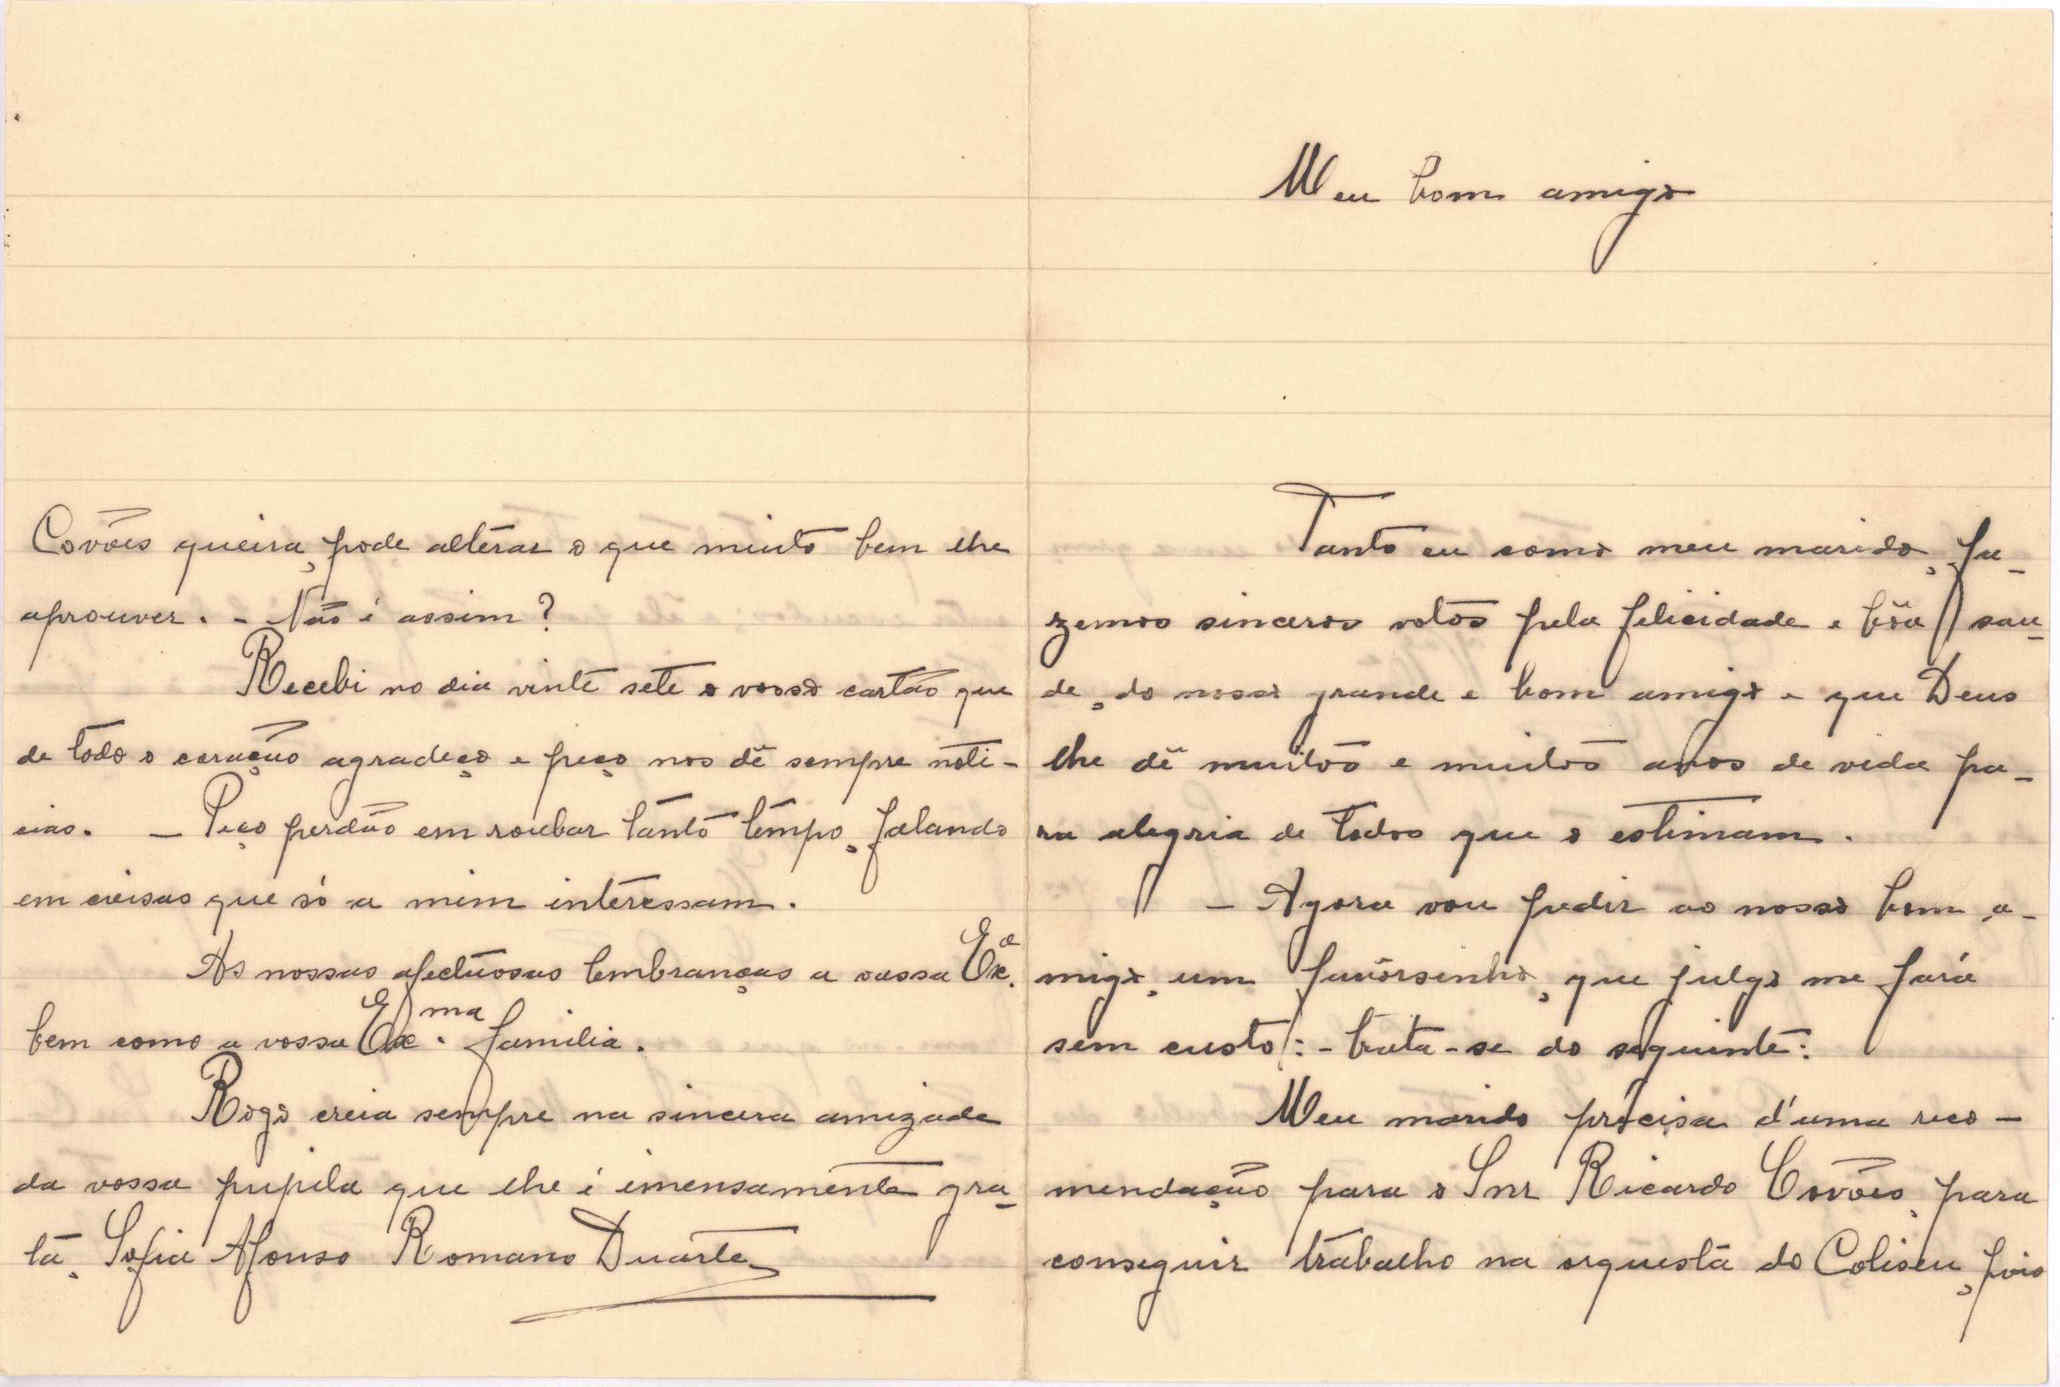 Meu bom amigo
Tanto eu como meu marido, fa-
zemos sinceros votos pela felicidade e bôa sau-
de, do nosso grande e bom amigo e que Deus
lhe dê muitos e muitos anos de vida pa-
ra alegria de todos que o estimam.
- Agora vou pedir ao nosso bom a-
migo, um favôrsinho, que julgo me fará
sem custo: - trata-se do seguinte:
Meu marido précisa d'uma reco-
mendação para o Snr Ricardo Covões, para
conseguir trabalho na orquesta do Coliseu, pois
Covões queira, pode alterar o que muito bem lhe
aprouver. - Não é assim?
Recebi no dia vinte sete o vosso cartão que
de todo o coração agradeço e peço nos dê sempre noti-
cias. - Peço perdão em roubar tanto tempo, falando
em coisas que só a mim interessam.
As nossas afectuosas lembranças a vossa Exª.
bem como a vossa Exma. familia.
Rogo creia sempre na sincera amizade
da vossa pupila que lhe é imensamente gra-
ta, Sofia Afonso Romano Duarte